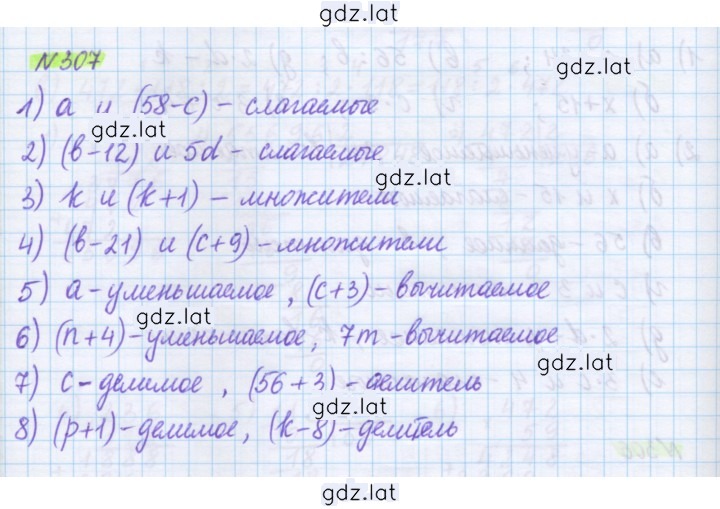 gdz.lat
N 307
gdz.lat
1) a и (58-c) - слагаемые
gdz.lat
2) (в-12) и 5d - слагаемые
gdz.lat
3) k и (k+1) - множители
4) (в-21) и (c+9) - множители
5) a - уменьшаемое, (c+3) - вычитаемое
gdz.lat
6) (n+4) - уменьшаемое, 7m - вычитаемое
gdz.lat
7) c - делимое, (56+3) - делитель
gdz.lat
8) (p+1) - делимое, (k-8) - делитель
gdz.lat